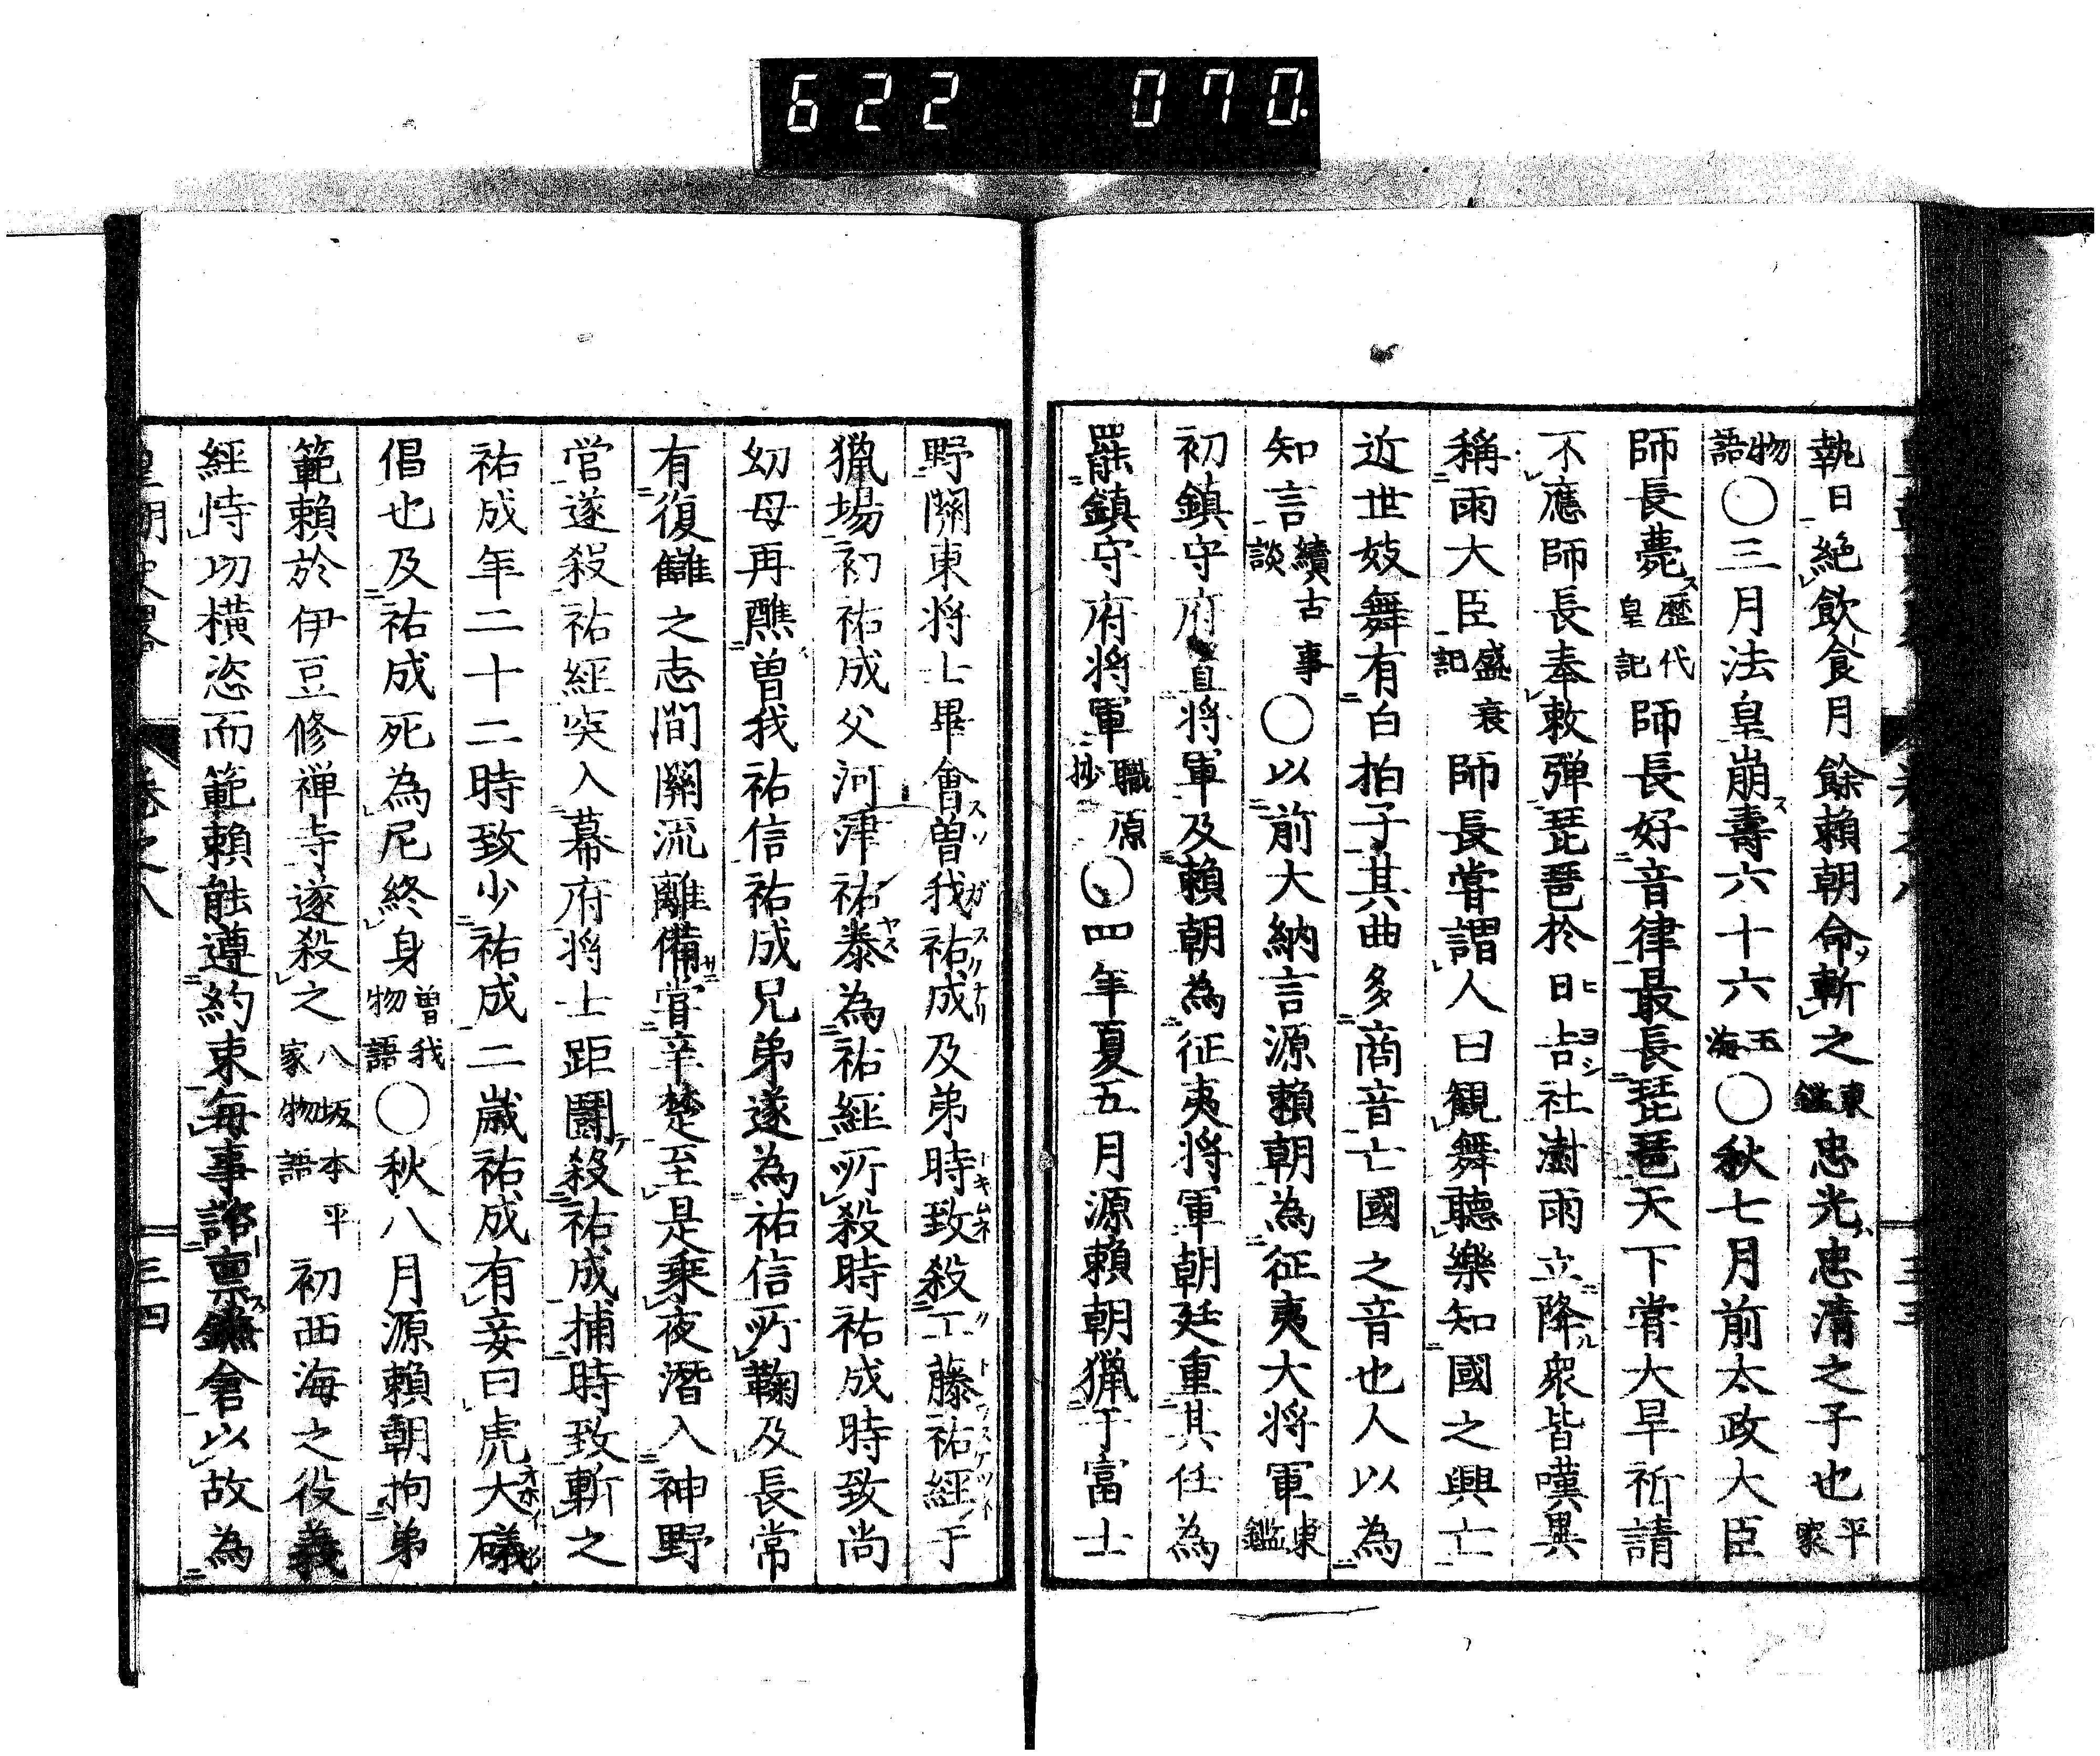 622 070.
執日絶飲食月餘賴朝命斬之東鑑忠光忠清之子也平家
物語〇三月法皇崩壽六十六玉海〇秋七月前太政大臣
師長薨歴代皇記師長好音律最長琵琶天下嘗大旱祈請
不應師長奉敕彈琵琶於日吉社澍雨立降衆皆嘆異
稱雨大臣盛衰記師長嘗謂人曰観舞聽樂知國之興亡
近世妓舞有白拍子其曲多商音亡國之音也人以為
知言續古事談〇以前大納言源賴朝為征夷大将軍東鑑
初鎮守府置将軍及賴朝為征夷将軍朝廷重其任為
罷鎮守府将軍職原抄〇四年夏五月源賴朝猟于富士
野關東将士畢會曽我祐成及弟時致殺工藤祐經于
猟場初祐成父河津祐泰為祐經所殺時祐成時致尚
幼母再醮曽我祐信祐成兄弟遂為祐信所鞠及長常
有復讎之志間關流離備嘗辛楚至是乘夜潛入神野
営遂殺祐經突入幕府将士距闘殺祐成捕時致斬之
祐成年二十二時致少祐成二歳祐成有妾曰虎大礒
倡也及祐成死為尼終身曽我物語〇秋八月源賴朝拘弟
範賴於伊豆修禅寺遂殺之八坂本平家物語初西海之役義
經恃功横恣而範賴能遵約束毎事諮禀鎌倉以故為
皇朝史畧 巻之八 三四